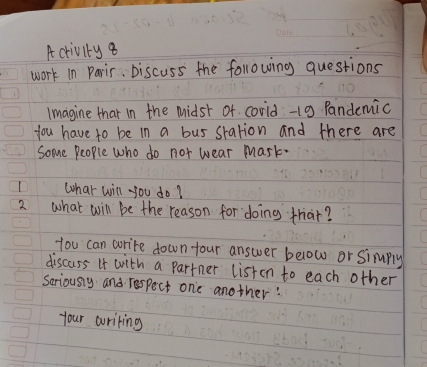 Activity 8
work in Pair. Discuss the following questions
Imagine that in the midst of. covid -19 Pandemic
you have to be in a bus station and there are
Some People who do not wear Mask.
1 what will you do?
2 what will be the reason for doing that?
You can write down your answer below or simply
discuss it with a partner listen to each other
Seriously and respect one another!
Your writing